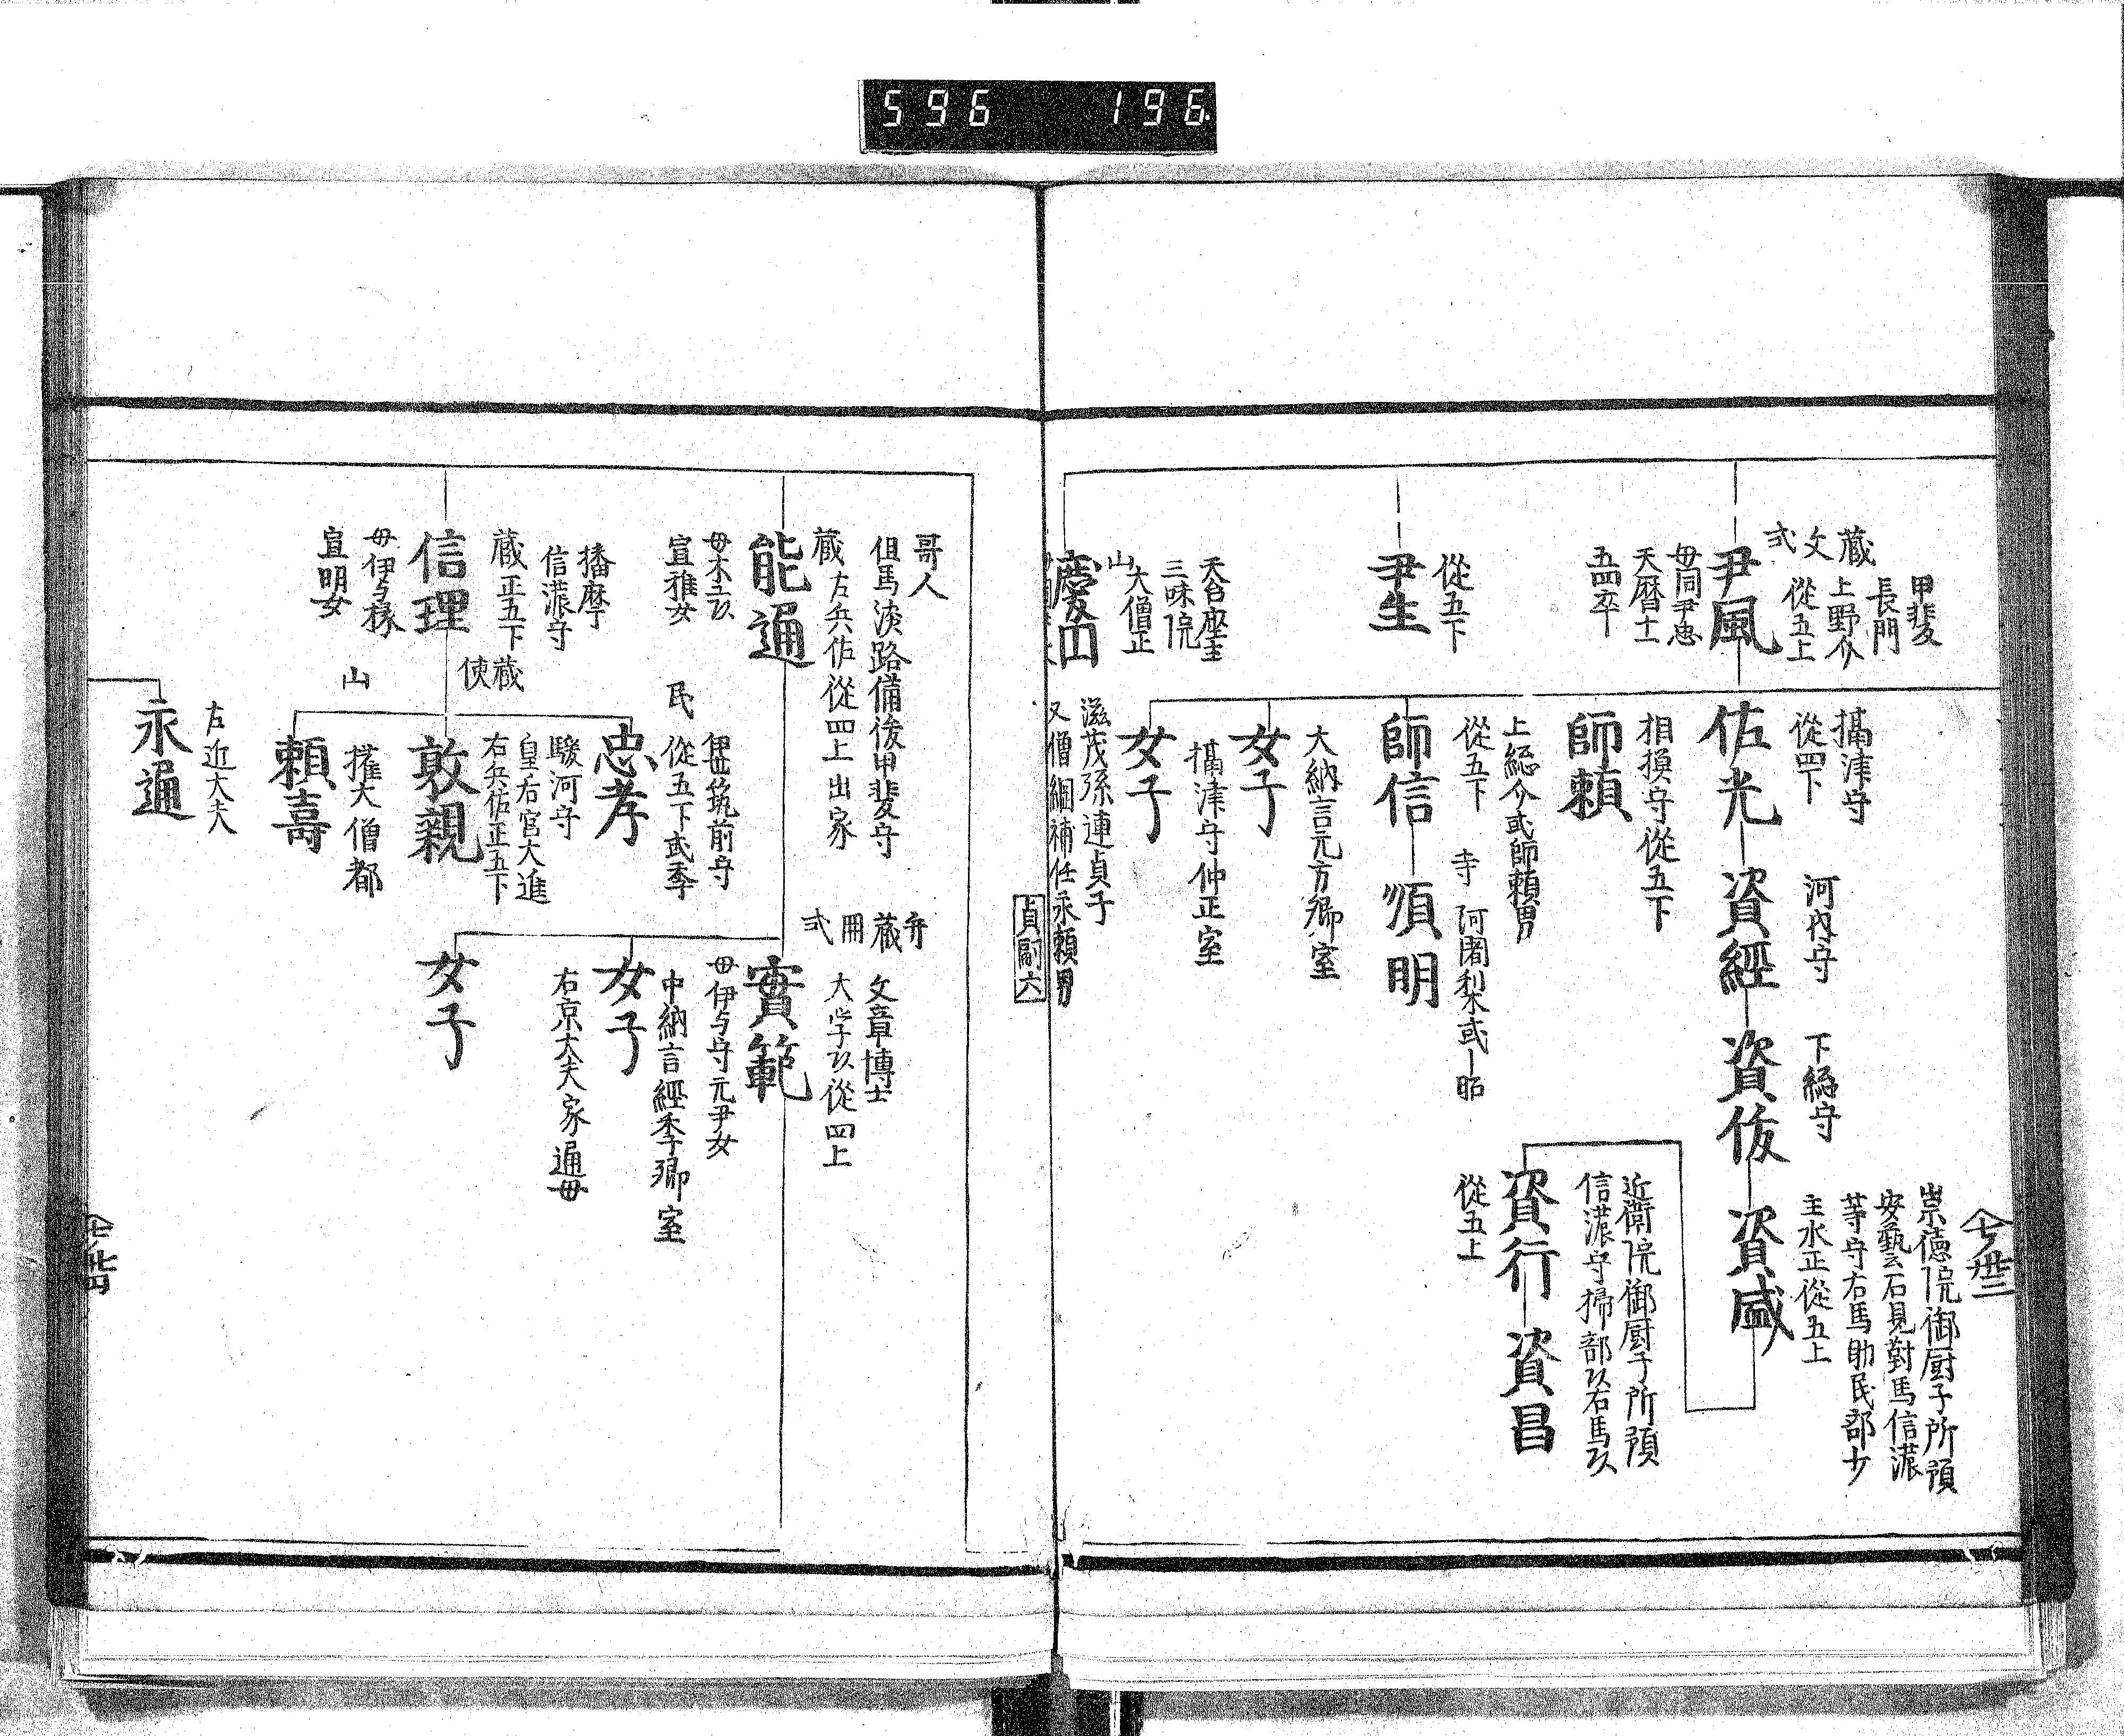 596 196
甲斐
長門
蔵 上野介
文 從五上
式
尹風
母同尹忠
天暦十一
五四卒
攝津守
從四下
佐光
河内守
資經
下總守
資俊
崇德院御厨子所預
安藝石見對馬信濃
等守右馬助民部少
主水正從五上
資盛
近衛院御厨子所預
信濃守掃部以右馬以
資行
從五上
資昌
相摸守從五下
師頼
從五下
尹生
上総介或師頼男
從五下
師信
寺 阿闍梨或昭
須明
大納言元方卿室
女子
攝津守仲正室
女子
天台座主
三味院
大僧正
山
慶円
滋茂孫連貞子
又僧綱補任永頼男
貞嗣六
哥人
但馬淡路備後甲斐守
蔵 左兵佐從四上出家
能通
母木工以
宣雅女
弁
蔵 文章博士
冊 大学以從四上
式
實範
母伊与守元尹女
中納言經季卿室
女子
右京大夫家通母
女子
播摩
信濃守
蔵 正五下
信理
母伊与掾
宣明女
民
筑前守
從五下或季
忠孝
駿河守
皇后宮大進
右兵佐正五下
蔵
使
敦親
山
権大僧都
頼壽
右近大夫
永通